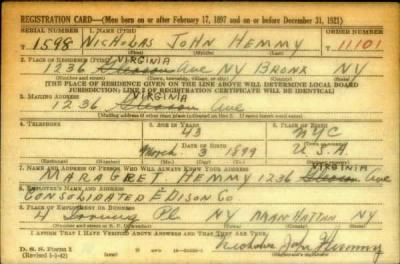 REGISTRATION CARD—(Men born on or after February 17, 1897 and on or before December 31, 1921)
SERIAL NUMBER 1. NAME (Print) ORDER NUMBER
T 1598 NICHOLAS JOHN HEMMY T 11101
2. PLACE OF RESIDENCE (Print) VIRGINIA
1236 Ave NY BRONX NY
(Number and street) (Town, township, village, or city) (County) (State)
[THE PLACE OF RESIDENCE GIVEN ON THE LINE ABOVE WILL DETERMINE LOCAL BOARD
JURISDICTION; LINE 2 OF REGISTRATION CERTIFICATE WILL BE IDENTICAL]
3. MAILING ADDRESS VIRGINIA
1236 Ave
[Mailing address if other than place indicated on line 2. If same insert word same]
4. TELEPHONE 5. AGE IN YEARS 6. PLACE OF BIRTH
43 NYC
DATE OF BIRTH
March 3 1899 U.S.A.
7. NAME AND ADDRESS OF PERSON WHO WILL ALWAYS KNOW YOUR ADDRESS VIRGINIA
MARAGRET HEMMY 1236 Ave
8. EMPLOYER'S NAME AND ADDRESS
CONSOLIDATED EDISON CO.
9. PLACE OF EMPLOYMENT OR BUSINESS
4 Irving Pl NY MANHATTAN NY
(Number and street or R. F. D. number) (Town) (County) (State)
I AFFIRM THAT I HAVE VERIFIED ABOVE ANSWERS AND THAT THEY ARE TRUE.
D. S. S. Form 1
(Revised 4-1-42) (over) Nicholas John Hemmy